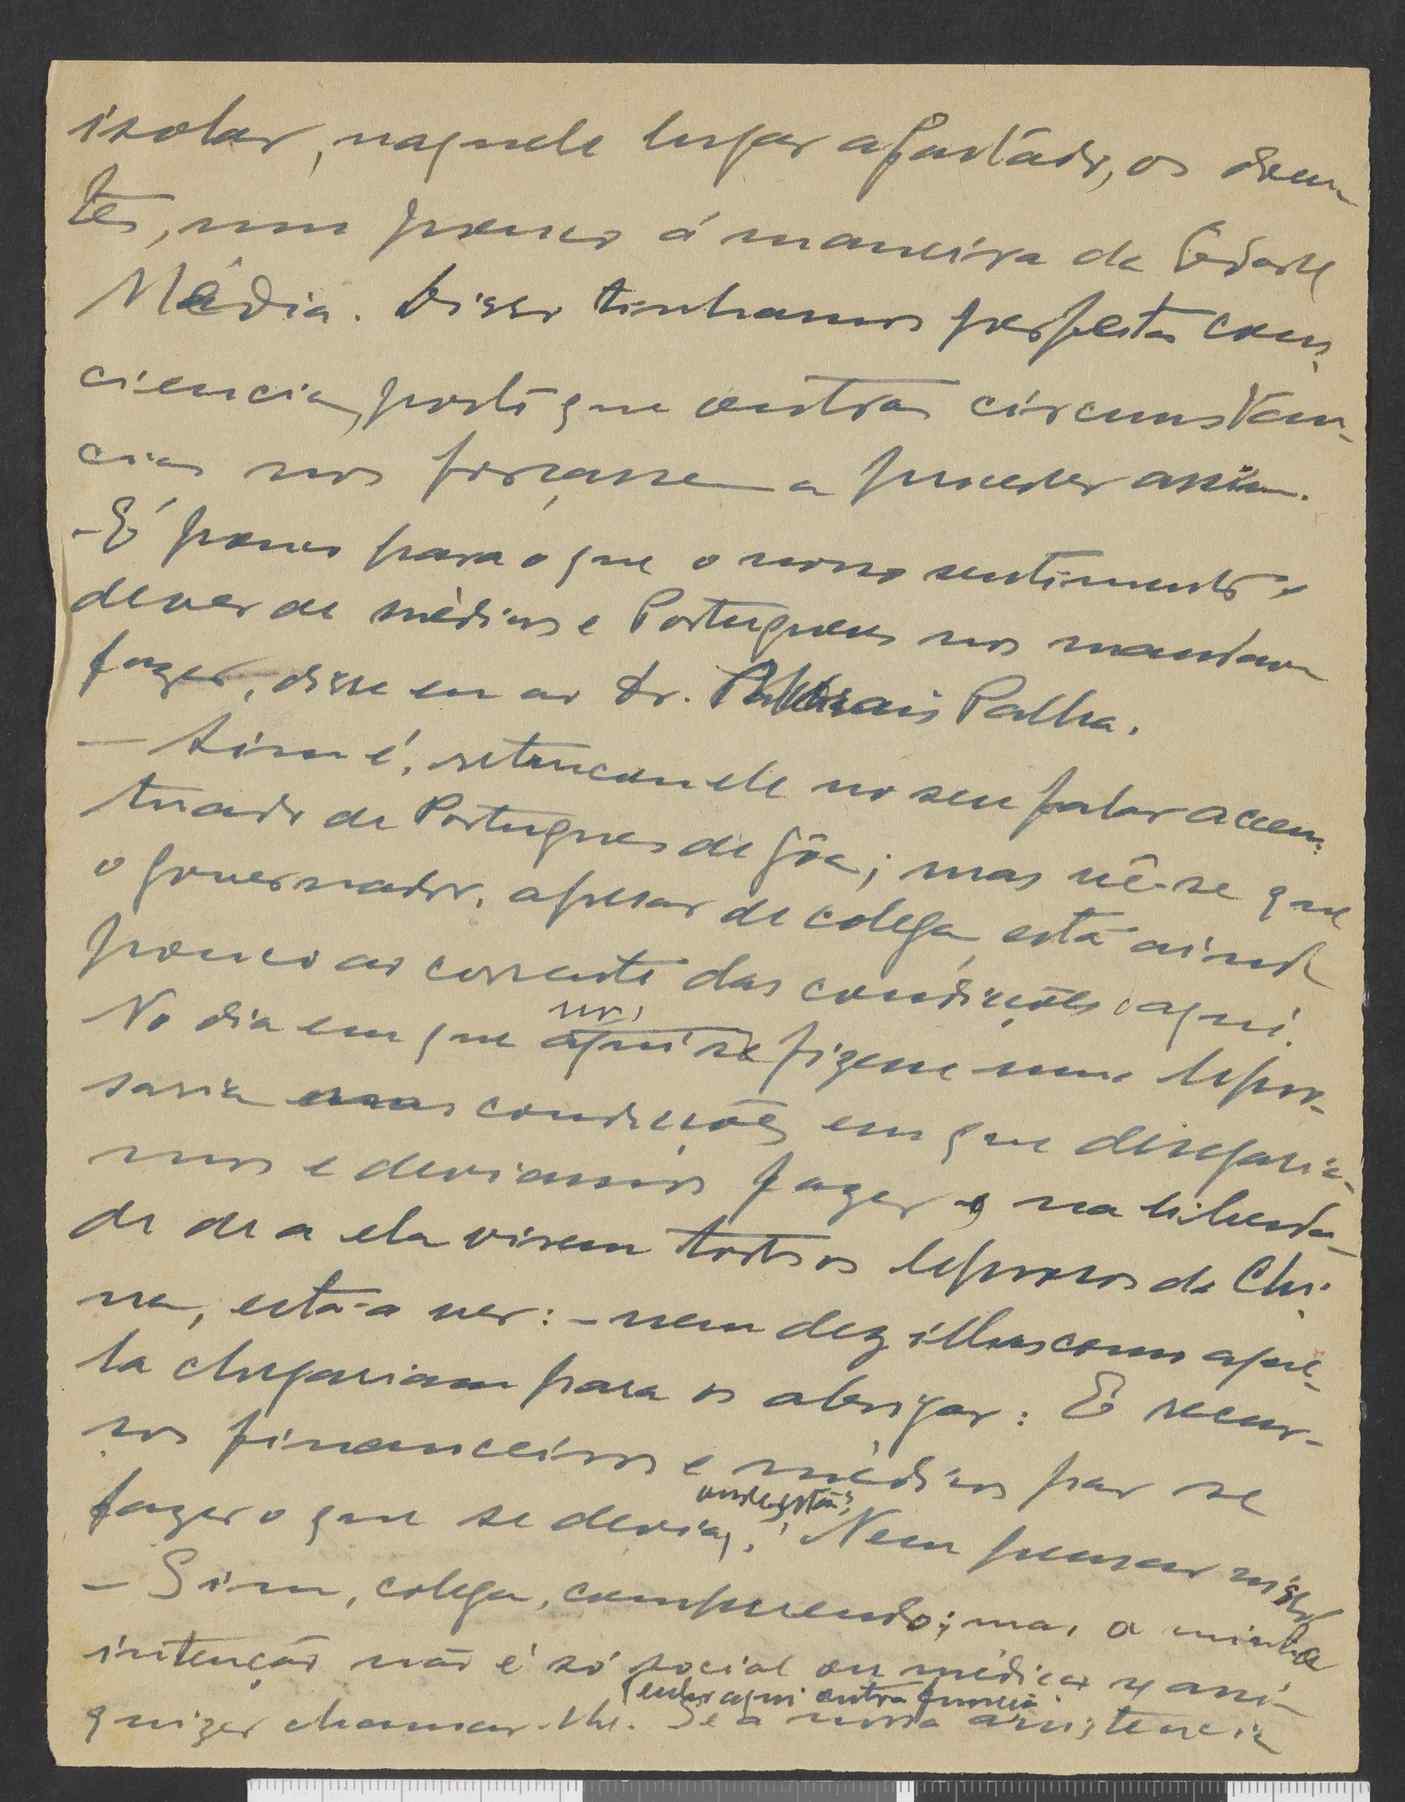 isolar, naquele lugar afastado, os doen-
tes, um pouco á maneira da Edade
Média. Disso tinhamos perfeita cons-
ciencia, posto que outras circunstan-
cias nos forçassem a proceder assim.
- É pouco para o que o nosso sentimento e
dever de médicos e Portugueses nos mandava
fazer, disse eu ao Dr. Morais Palha.
— Assim é, retrucou ele no seu falar acen-
tuado de Português de Gôa; mas vê-se que
o governador, apesar de colega, está ainda
pouco ao corrente das condições aqui.
nós
No dia em que aqui se fizesse uma lepro-
saria nas condições em que desejaria-
mos e deviamos fazer, e na liberda-
de de a ela virem todos os leprosos da Chi-
na, está a ver: - nem dez ilhas como aque-
la chegariam para os abrigar: E recur-
sos financeiros e médicos para se
onde estão?
fazer o que se devia,! Nem pensar nisso
- Sim, colega, compreendo; mas a minha
intenção não é só social ou médica, se assi
tenho aqui outra função
quizer chamar-lhe. Se a nossa assistencia